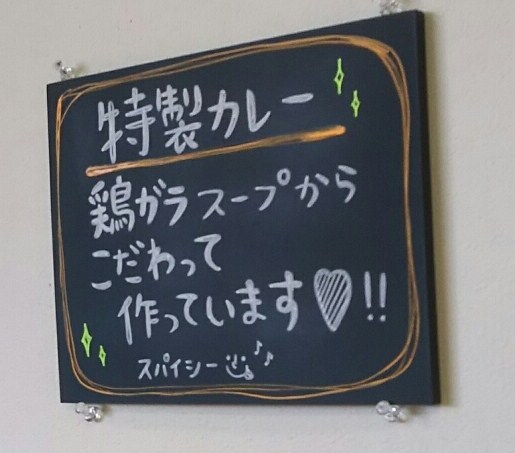 特製カレー
鶏ガラスープから
こだわって
作っています♥!!
スパイシー♪♪